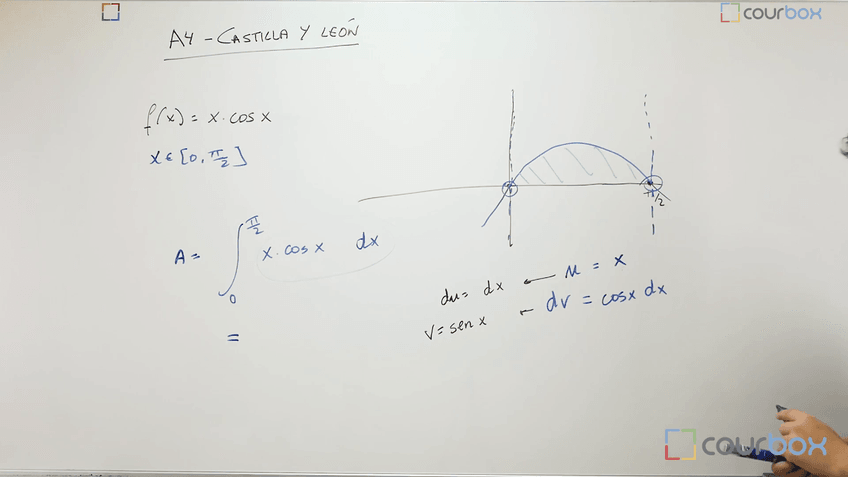 courbox
A4 - CASTILLA Y LEÓN
f(x) = x · cos x
x ∈ [0, π/2]
π/2
A = ∫₀^(π/2) x · cos x dx
=
du = dx ← u = x
v = sen x ← dv = cosx dx
courbox